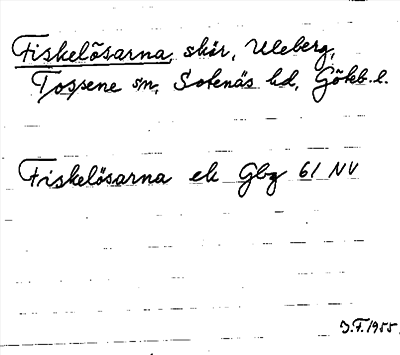 Fiskelösarna, skär, Uleberg,
Tossene sn, Sotenäs hd, Göteb. l.
Fiskelösarna ek Gbg 61 NV
J.F. 1955